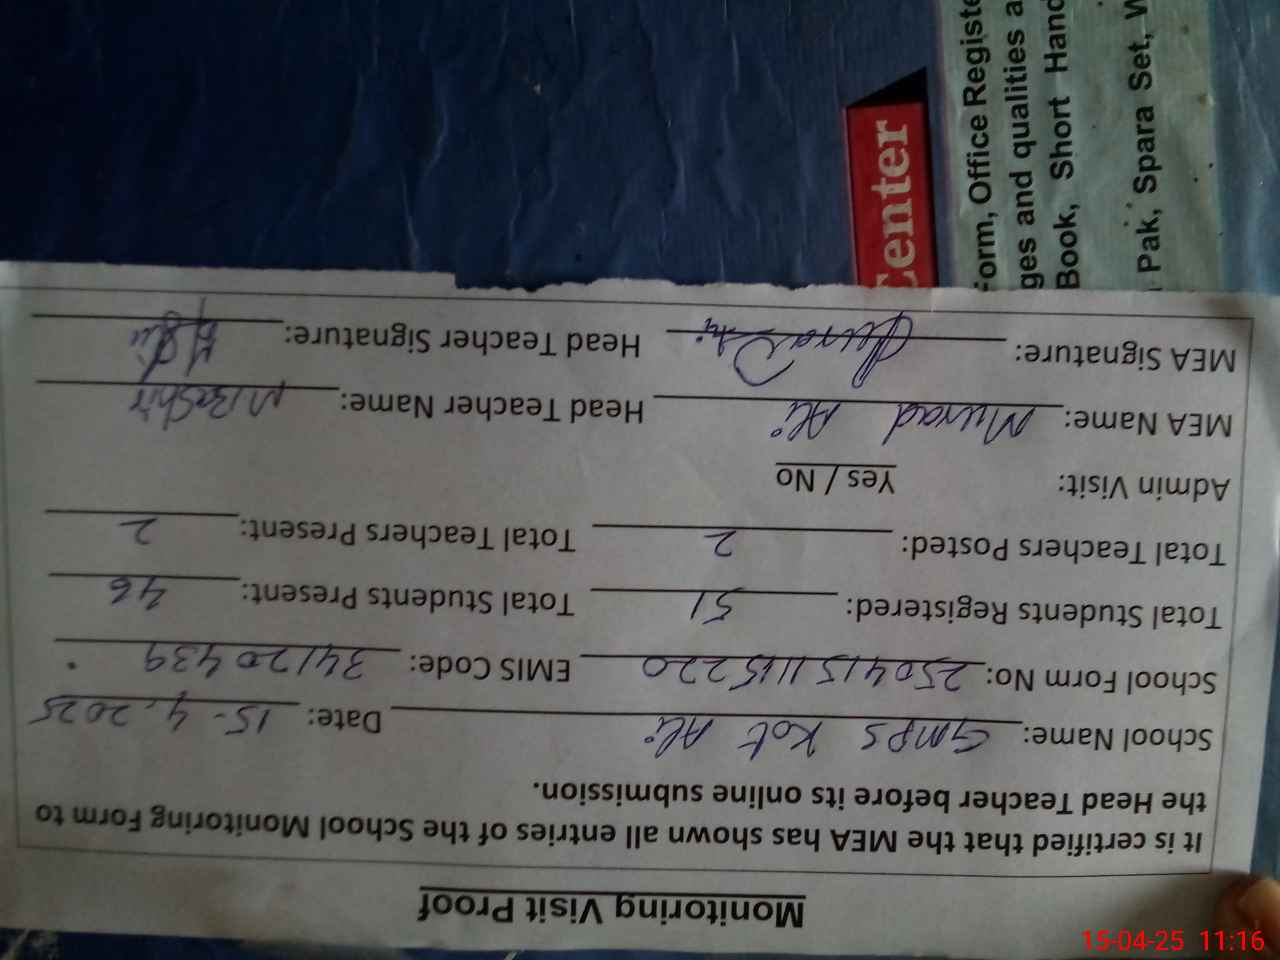 Monitoring Visit Proof
It is certified that the MEA has shown all entries of the School Monitoring Form to
the Head Teacher before its online submission.
School Name: GMPS Kot Ali Date: 15-4-2025
School Form No: 2504151115220 EMIS Code: 34120439
Total Students Registered: 51 Total Students Present: 46
Total Teachers Posted: 2 Total Teachers Present: 2
Admin Visit: Yes / No
MEA Name: Murad Ali Head Teacher Name: M Bashir
MEA Signature: Head Teacher Signature:
Center
Form, Office Registe
ges and qualities a
Book, Short Hand
Pak, Spara Set, W
15-04-25 11:16